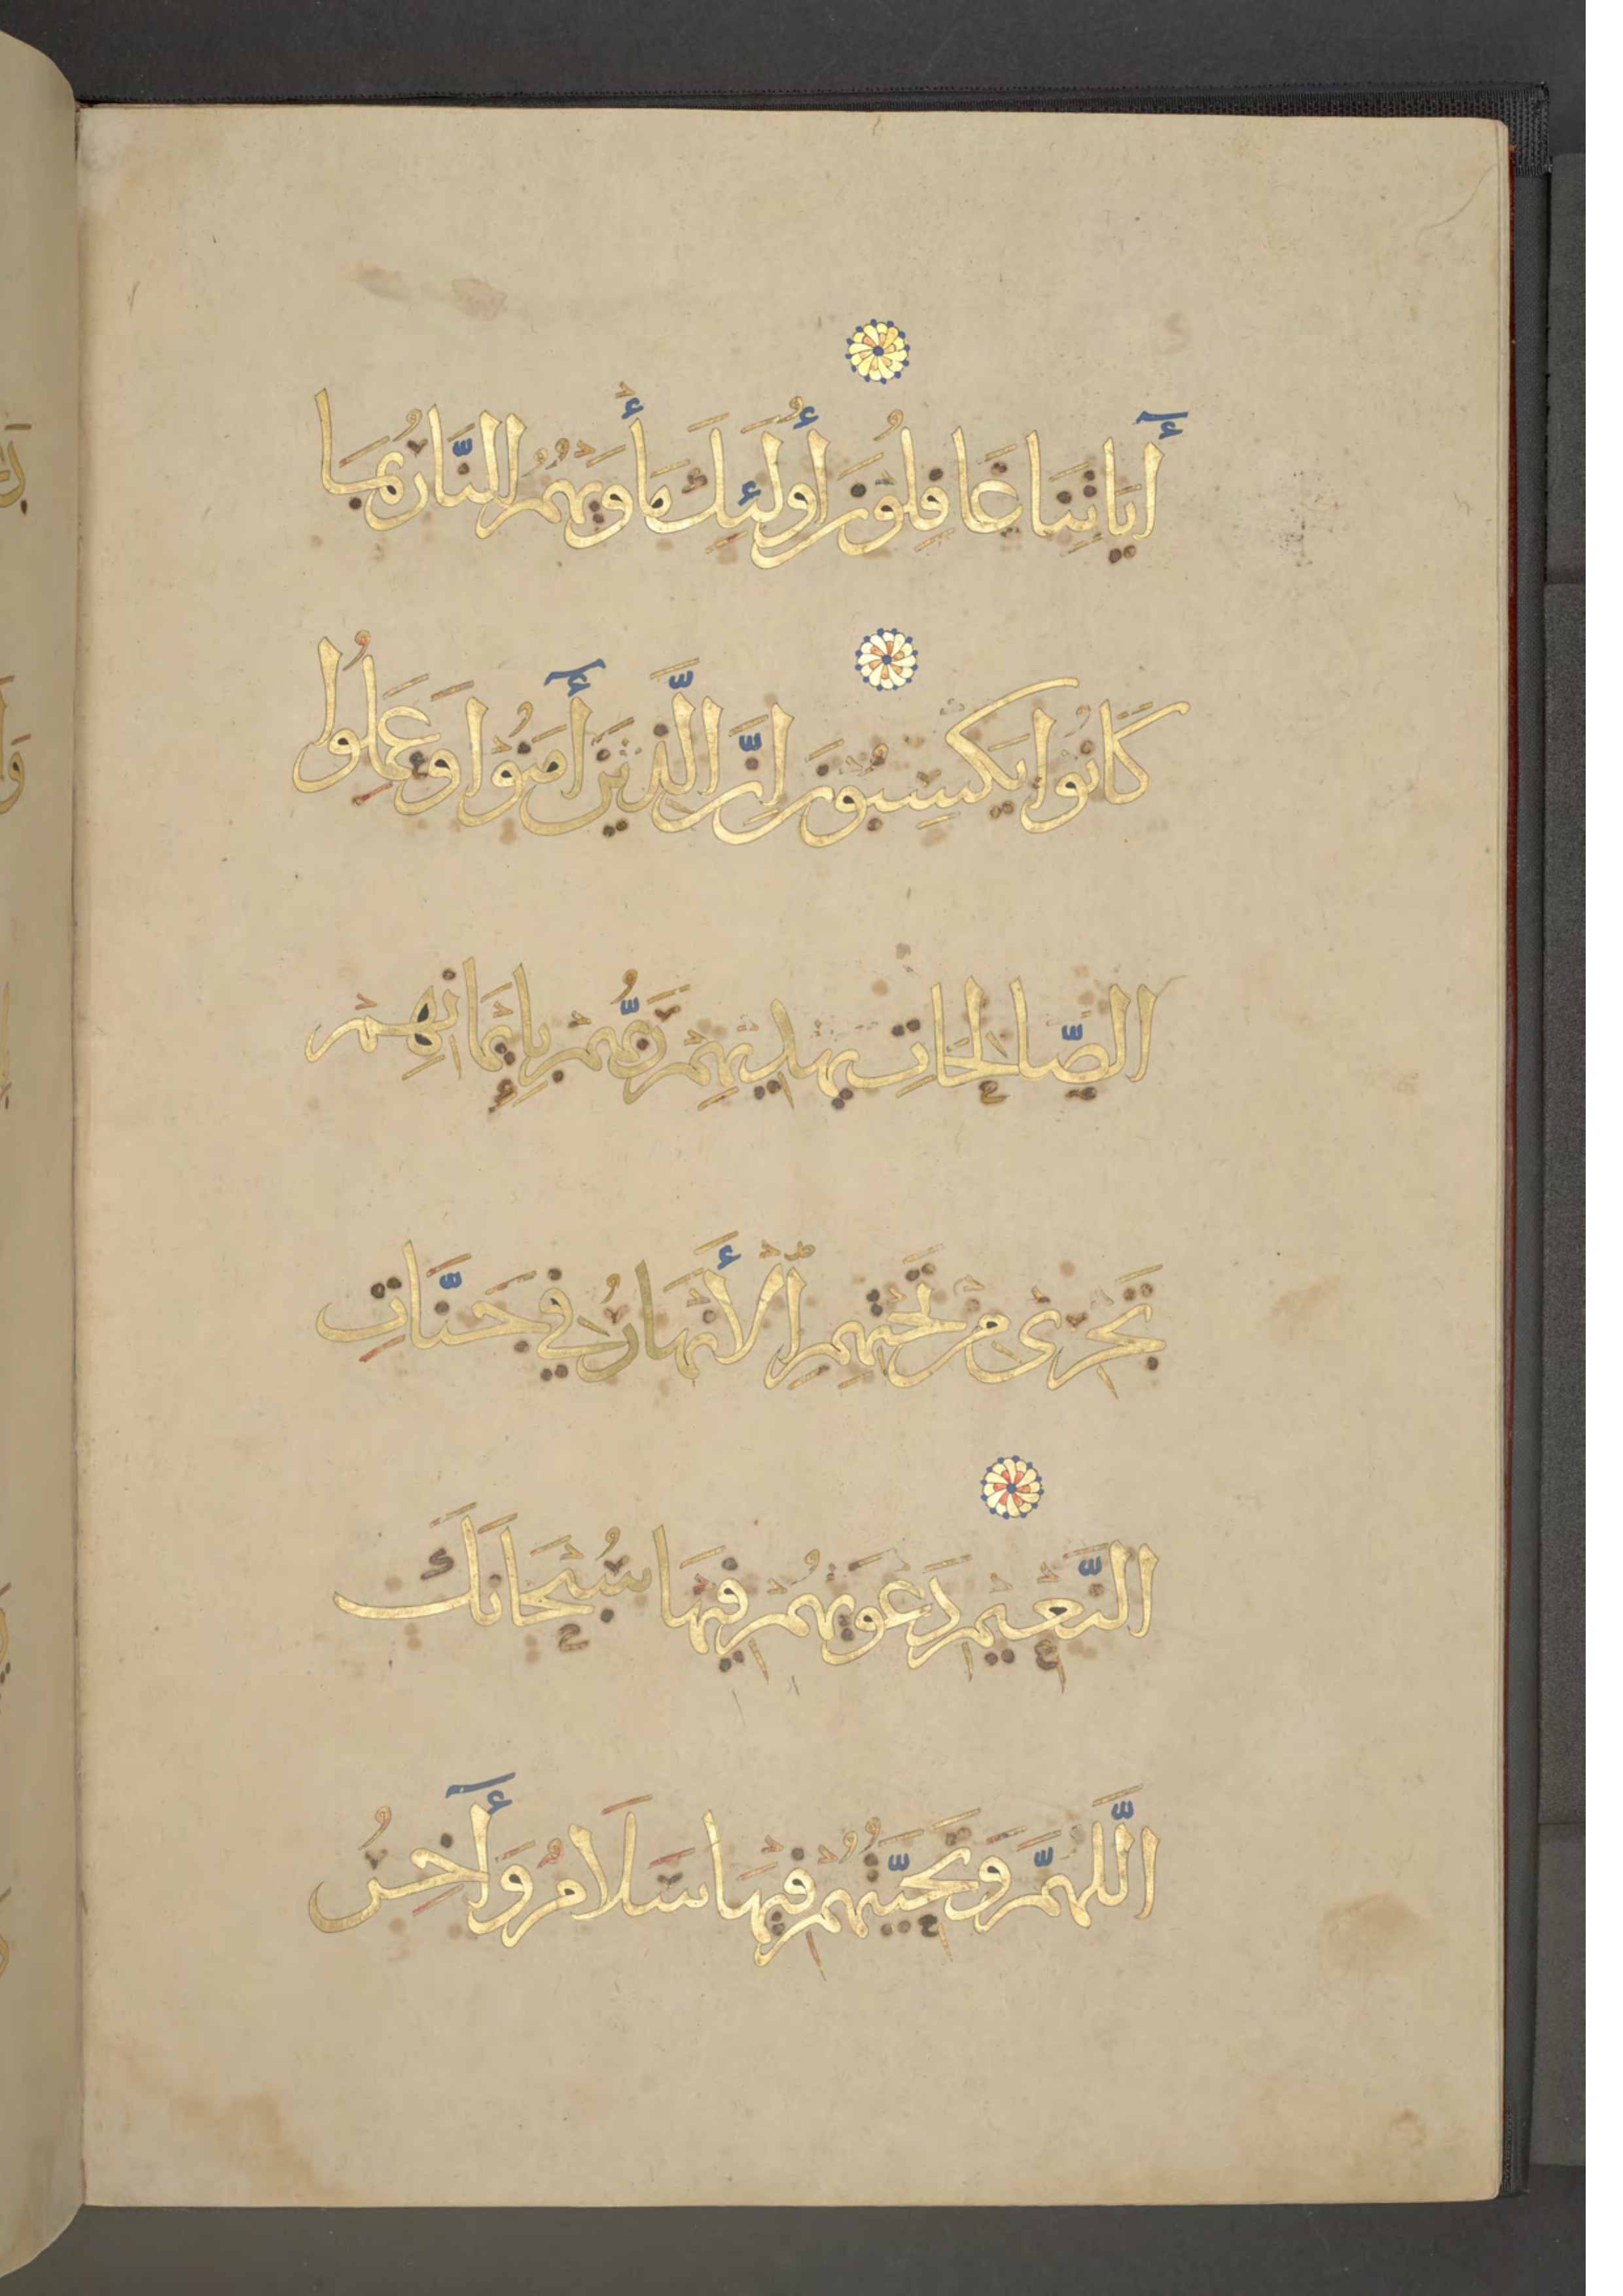 آيَاتِنَا غَافِلُونَ أُولَئِكَ مَأْوَيهُمُ النَّارُ بِمَا
كَانُوا يَكْسِبُونَ إِنَّ الَّذِينَ آمَنُوا وَعَمِلُوا
الصَّالِحَاتِ يَهْدِيهِمْ رَبُّهُمْ بِإِيمَانِهِمْ
تَجْرِى مِنْ تَحْتِهِمِ الْأَنْهَارُ فِي جَنَّاتِ
النَّعِيمِ دَعْوَيهُمْ فِيهَا سُبْحَانَكَ
اللَّهُمَّ وَتَحِيَّتُهُمْ فِيهَا سَلَامٌ وَآخِرُ